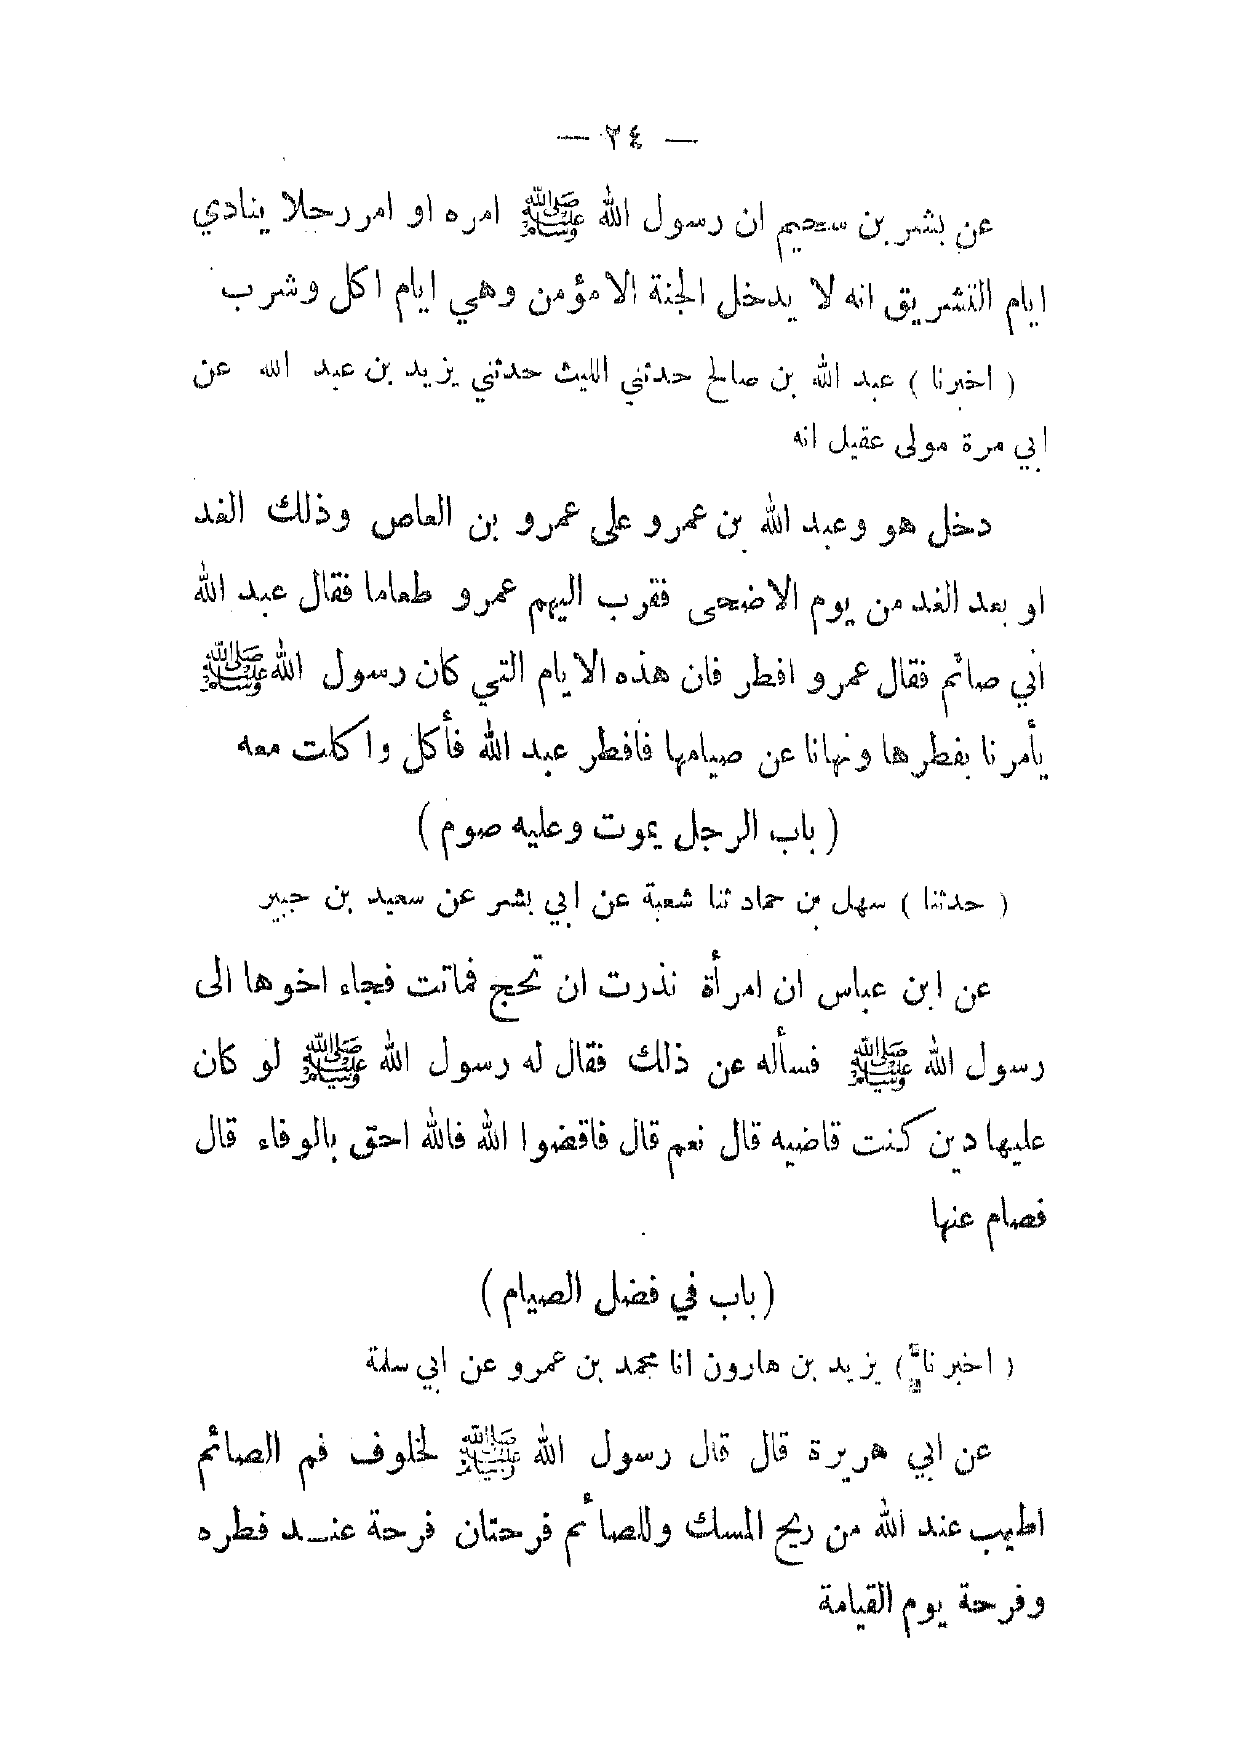 — ٢٤ —
عن بشر بن سحيم ان رسول الله ﷺ امره او امر رجلا ينادي
ايام التشريق انه لا يدخل الجنة الا مؤمن وهي ايام اكل وشرب
( اخبرنا ) عبد الله بن صالح حدثني الليث حدثني يزيد بن عبد الله عن
ابي مرة مولى عقيل انه
دخل هو وعبد الله بن عمرو على عمرو بن العاص وذلك الغد
او بعد الغد من يوم الاضحى فقرب اليهم عمرو طعاما فقال عبد الله
اني صائم فقال عمرو افطر فان هذه الايام التي كان رسول الله ﷺ
يأمرنا بفطرها ونهانا عن صيامها فافطر عبد الله فأكل واكلت معه
( باب الرجل يموت وعليه صوم )
( حدثنا ) سهل بن حماد ثنا شعبة عن ابي بشر عن سعيد بن جبير
عن ابن عباس ان امرأة نذرت ان تحج فماتت فجاء اخوها الى
رسول الله ﷺ فسأله عن ذلك فقال له رسول الله ﷺ لو كان
عليها دين كنت قاضيه قال نعم قال فاقضوا الله فالله احق بالوفاء قال
فصام عنها
( باب في فضل الصيام )
( اخبرنا ) يزيد بن هارون انا محمد بن عمرو عن ابي سلمة
عن ابي هريرة قال قال رسول الله ﷺ لخلوف فم الصائم
اطيب عند الله من ريح المسك وللصائم فرحتان فرحة عنـد فطره
وفرحة يوم القيامة